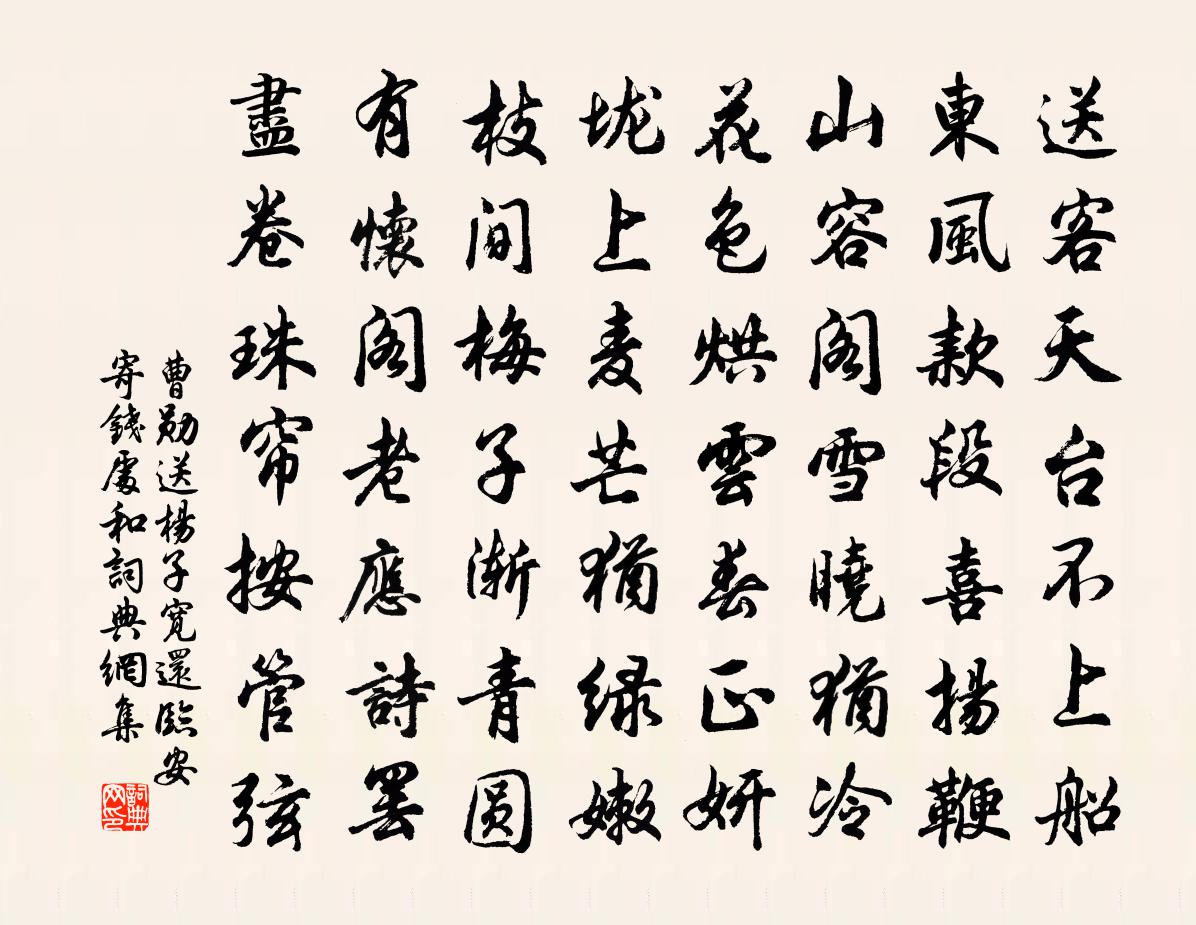 送客天台不上船
東風款段喜揚鞭
山容阁雪曉猶冷
花色烘雲春正妍
垅上麦芒猶绿嫩
枝间梅子渐青圆
有懷阁老應詩罢
盡卷珠帘按管弦
曹勋送楊子寬還臨安
寄錢處和詞典網集
詞典网印